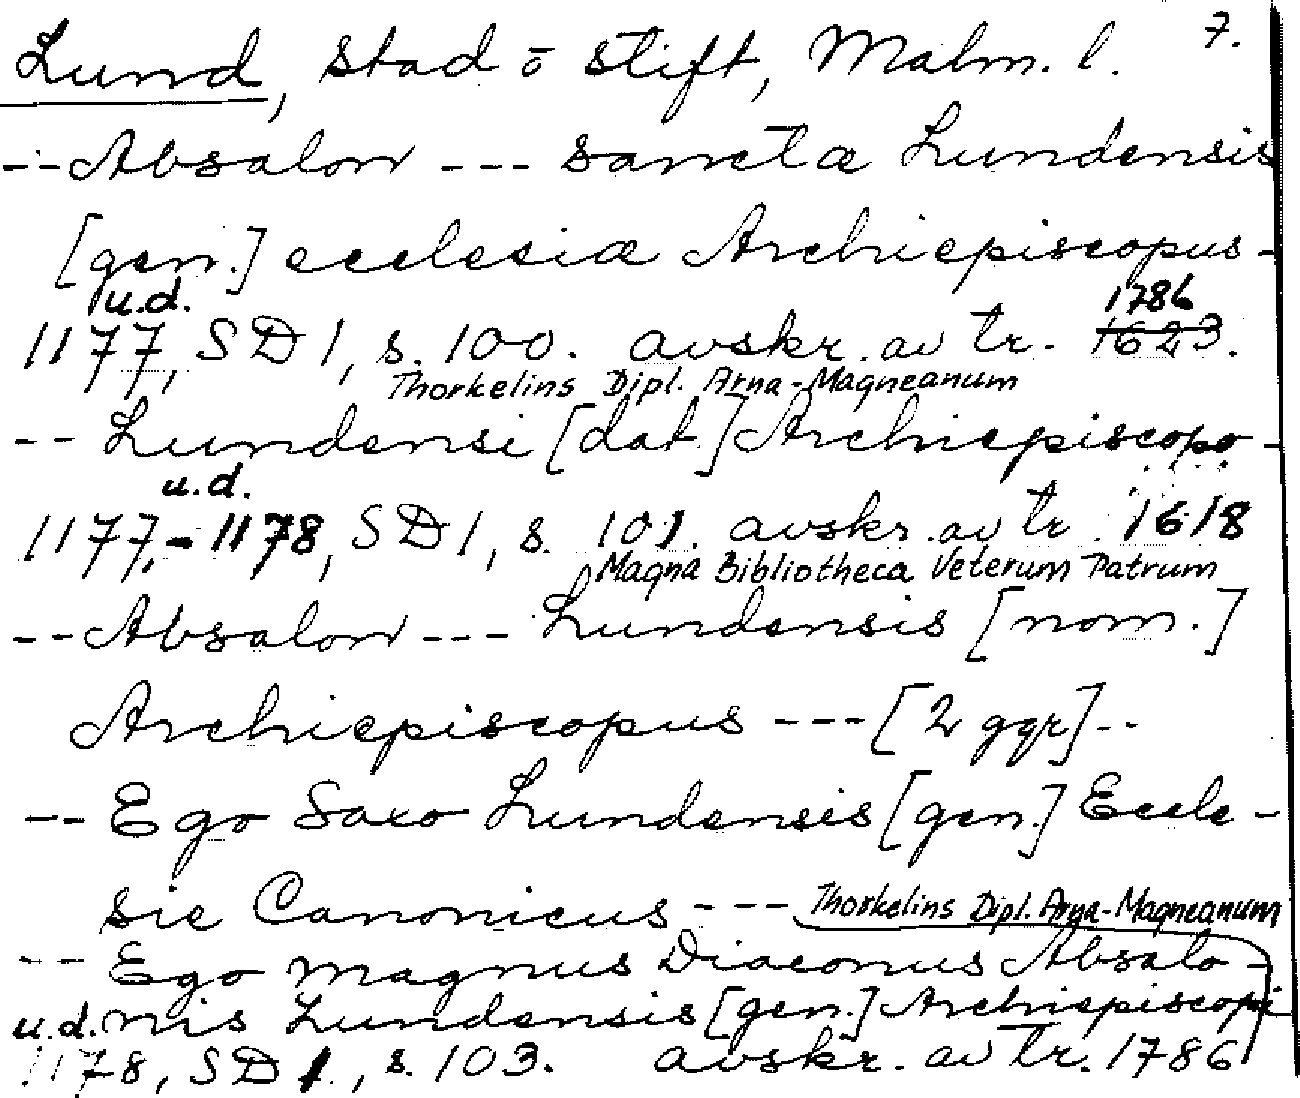 7.
Lund, stad o stift, Malm. l.
-- Absalon --- sanctæ Lundensis
[gen.] ecclesiæ Archiepiscopus -
u.d. 1786
1177, SD 1, s. 100. avskr. av tr. 1623.
Thorkelins Dipl. Arna-Magneanum
-- Lundensi [dat.] Archiepiscopo -
u.d.
1177, - 1178, SD 1, s. 101. avskr. av tr. 1618
Magna Bibliotheca Veterum Patrum
-- Absalon --- Lundensis [nom.]
Archiepiscopus --- [2 ggr] --
-- Ego Saxo Lundensis [gen.] Eccle-
sie Canonicus --- Thorkelins Dipl. Arna-Magneanum
-- Ego Magnus Diaconus Absalo-
u.d. nis Lundensis [gen.] Archiepiscopi
1178, SD 1., s. 103. avskr. av tr. 1786